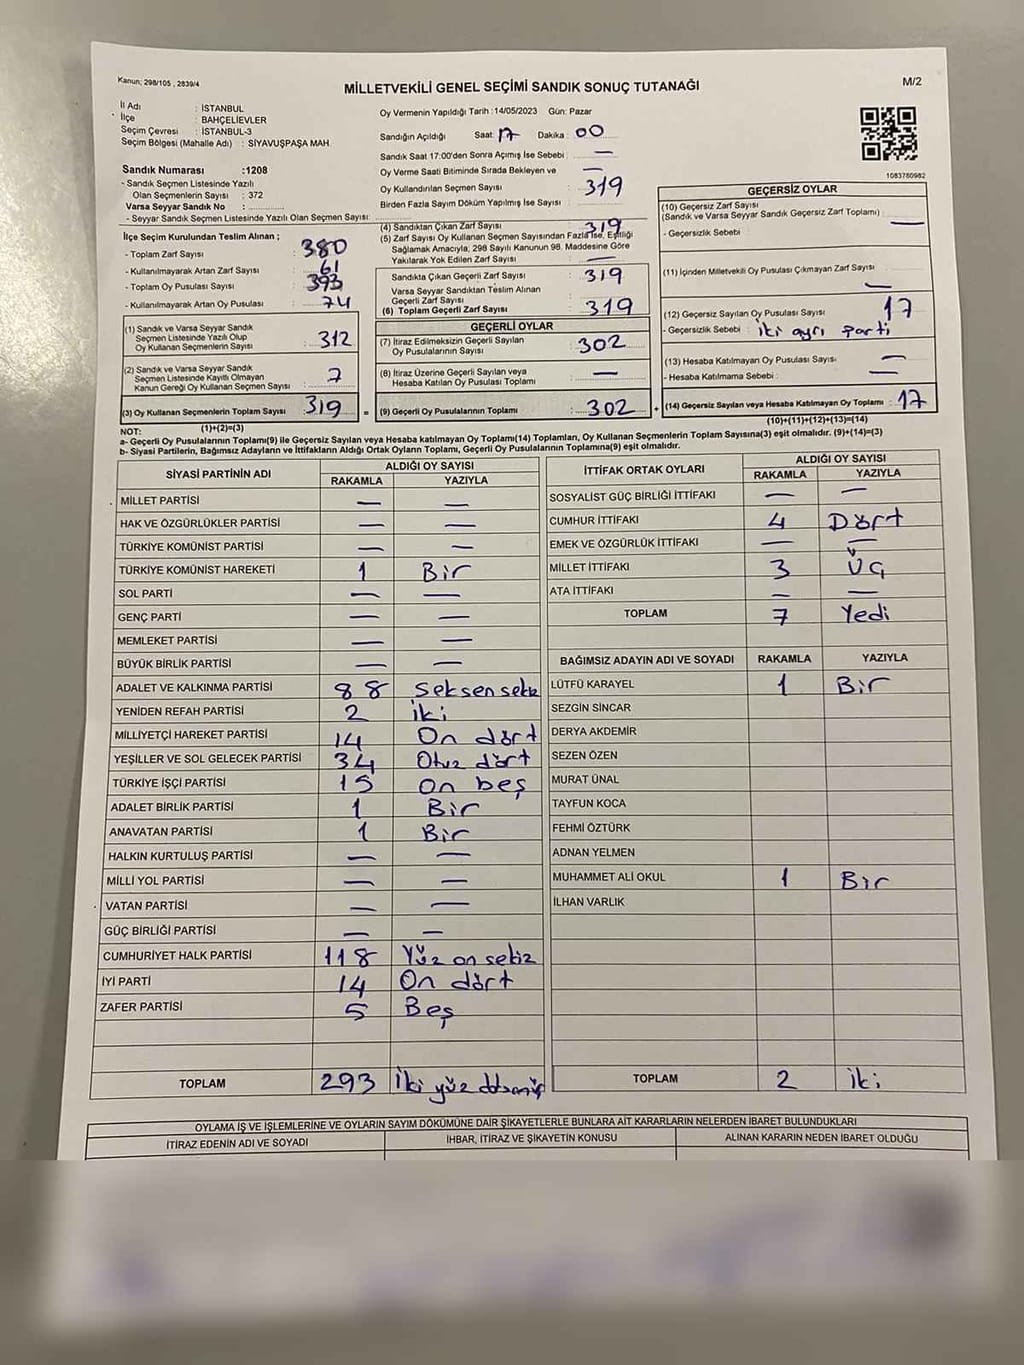 Kanun; 298/105 , 2839/4
MİLLETVEKİLİ GENEL SEÇİMİ SANDIK SONUÇ TUTANAĞI
M/2
İl Adı : İSTANBUL
İlçe : BAHÇELİEVLER
Seçim Çevresi : İSTANBUL-3
Seçim Bölgesi (Mahalle Adı) : SİYAVUŞPAŞA MAH.
Sandık Numarası :1208
- Sandık Seçmen Listesinde Yazılı
Olan Seçmenlerin Sayısı : 372
Varsa Seyyar Sandık No :
- Seyyar Sandık Seçmen Listesinde Yazılı Olan Seçmen Sayısı:
Oy Vermenin Yapıldığı Tarih :14/05/2023 Gün: Pazar
Sandığın Açıldığı Saat: 17 Dakika : 00
Sandık Saat 17:00'den Sonra Açımış İse Sebebi : —
Oy Verme Saati Bitiminde Sırada Bekleyen ve —
Oy Kullandırılan Seçmen Sayısı : 319
Birden Fazla Sayım Döküm Yapılmış İse Sayısı :
1083780982
İlçe Seçim Kurulundan Teslim Alınan ;
- Toplam Zarf Sayısı : 380
- Kullanılmayarak Artan Zarf Sayısı : 61
- Toplam Oy Pusulası Sayısı : 393
- Kullanılmayarak Artan Oy Pusulası : 74
(1) Sandık ve Varsa Seyyar Sandık
Seçmen Listesinde Yazılı Olup
Oy Kullanan Seçmenlerin Sayısı : 312
(2) Sandık ve Varsa Seyyar Sandık
Seçmen Listesinde Kayıtlı Olmayan
Kanun Gereği Oy Kullanan Seçmen Sayısı : 7
(3) Oy Kullanan Seçmenlerin Toplam Sayısı : 319
(1)+(2)=(3)
(4) Sandıktan Çıkan Zarf Sayısı : 319
(5) Zarf Sayısı Oy Kullanan Seçmen Sayısından Fazla İse, Eşitliği
Sağlamak Amacıyla; 298 Sayılı Kanunun 98. Maddesine Göre
Yakılarak Yok Edilen Zarf Sayısı : —
Sandıkta Çıkan Geçerli Zarf Sayısı : 319
Varsa Seyyar Sandıktan Teslim Alınan
Geçerli Zarf Sayısı
(6) Toplam Geçerli Zarf Sayısı : 319
GEÇERLİ OYLAR
(7) İtiraz Edilmeksizin Geçerli Sayılan
Oy Pusulalarının Sayısı : 302
(8) İtiraz Üzerine Geçerli Sayılan veya
Hesaba Katılan Oy Pusulası Toplamı : —
= (9) Geçerli Oy Pusulalarının Toplamı : 302
GEÇERSİZ OYLAR
(10) Geçersiz Zarf Sayısı
(Sandık ve Varsa Seyyar Sandık Geçersiz Zarf Toplamı) :
- Geçersizlik Sebebi : —
(11) İçinden Milletvekili Oy Pusulası Çıkmayan Zarf Sayısı : —
(12) Geçersiz Sayılan Oy Pusulası Sayısı : 17
- Geçersizlik Sebebi : iki ayrı parti
(13) Hesaba Katılmayan Oy Pusulası Sayısı : —
- Hesaba Katılmama Sebebi : —
+ (14) Geçersiz Sayılan veya Hesaba Katılmayan Oy Toplamı : 17
(10)+(11)+(12)+(13)=(14)
NOT:
a- Geçerli Oy Pusulalarının Toplamı(9) ile Geçersiz Sayılan veya Hesaba katılmayan Oy Toplamı(14) Toplamları, Oy Kullanan Seçmenlerin Toplam Sayısına(3) eşit olmalıdır. (9)+(14)=(3)
b- Siyasi Partilerin, Bağımsız Adayların ve İttifakların Aldığı Ortak Oyların Toplamı, Geçerli Oy Pusulalarının Toplamına(9) eşit olmalıdır.
SİYASİ PARTİNİN ADI ALDIĞI OY SAYISI
RAKAMLA YAZIYLA
MİLLET PARTİSİ — —
HAK VE ÖZGÜRLÜKLER PARTİSİ — —
TÜRKİYE KOMÜNİST PARTİSİ — —
TÜRKİYE KOMÜNİST HAREKETİ 1 Bir
SOL PARTİ — —
GENÇ PARTİ — —
MEMLEKET PARTİSİ — —
BÜYÜK BİRLİK PARTİSİ — —
ADALET VE KALKINMA PARTİSİ 88 Seksen sekiz
YENİDEN REFAH PARTİSİ 2 İki
MİLLİYETÇİ HAREKET PARTİSİ 14 On dört
YEŞİLLER VE SOL GELECEK PARTİSİ 34 Otuz dört
TÜRKİYE İŞÇİ PARTİSİ 15 On beş
ADALET BİRLİK PARTİSİ 1 Bir
ANAVATAN PARTİSİ 1 Bir
HALKIN KURTULUŞ PARTİSİ — —
MİLLİ YOL PARTİSİ — —
VATAN PARTİSİ — —
GÜÇ BİRLİĞİ PARTİSİ — —
CUMHURİYET HALK PARTİSİ 118 Yüz on sekiz
İYİ PARTİ 14 On dört
ZAFER PARTİSİ 5 Beş
TOPLAM 293 İki yüz
İTTİFAK ORTAK OYLARI ALDIĞI OY SAYISI
RAKAMLA YAZIYLA
SOSYALİST GÜÇ BİRLİĞİ İTTİFAKI — —
CUMHUR İTTİFAKI 4 Dört
EMEK VE ÖZGÜRLÜK İTTİFAKI — —
MİLLET İTTİFAKI 3 Üç
ATA İTTİFAKI — —
TOPLAM 7 Yedi
BAĞIMSIZ ADAYIN ADI VE SOYADI RAKAMLA YAZIYLA
LÜTFÜ KARAYEL 1 Bir
SEZGİN SİNCAR
DERYA AKDEMİR
SEZEN ÖZEN
MURAT ÜNAL
TAYFUN KOCA
FEHMİ ÖZTÜRK
ADNAN YELMEN
MUHAMMET ALİ OKUL 1 Bir
İLHAN VARLIK
TOPLAM 2 İki
OYLAMA İŞ VE İŞLEMLERİNE VE OYLARIN SAYIM DÖKÜMÜNE DAİR ŞİKAYETLERLE BUNLARA AİT KARARLARIN NELERDEN İBARET BULUNDUKLARI
İTİRAZ EDENİN ADI VE SOYADI İHBAR, İTİRAZ VE ŞİKAYETİN KONUSU ALINAN KARARIN NEDEN İBARET OLDUĞU